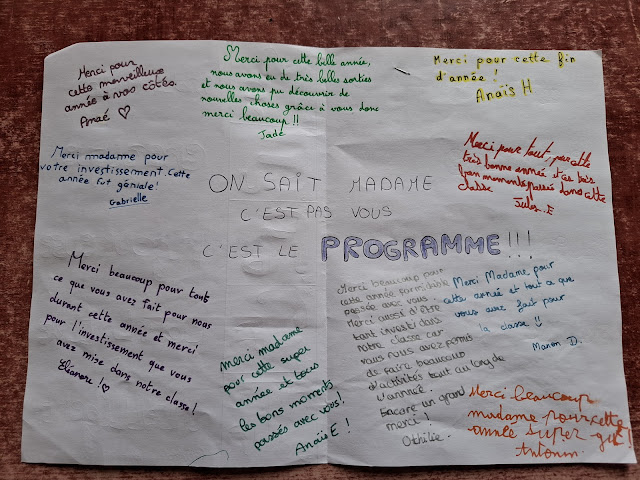 Merci pour
cette merveilleuse
année à vos côtés.
Anaé ♡
Merci pour cette belle année,
nous avons eu de très belles sorties
et nous avons pu découvrir de
nouvelles choses grâce à vous donc
merci beaucoup !!
Jade
Merci pour cette fin
d'année !
Anaïs H
Merci madame pour
votre investissement. Cette
année fut géniale!
Gabrielle
Merci pour tout, pour cette
très bonne année et ces très
bon moments passés dans cette
classe.
Jules.E
ON SAIT MADAME
C'EST PAS VOUS
C'EST LE PROGRAMME!!!
Merci beaucoup pour tout
ce que vous avez fait pour nous
durant cette année et merci
pour l'investissement que vous
avez mise dans notre classe!
Eléanore !♡
merci madame
pour cette super
année et tous
les bons moments
passés avec vous!
Anaïs E !
Merci beaucoup pour
cette année formidable
passée avec vous.
Merci aussi d'être
tant investi dans
notre classe car
vous nous avez permis
de faire beaucoup
d'activités tout au long de
l'année.
Encore un grand
merci !
Othilie.
Merci Madame pour
cette année et tout ce que
vous avez fait pour
la classe !!
Manon D.
Merci beaucoup
madame pour cette
année super
Antonin.